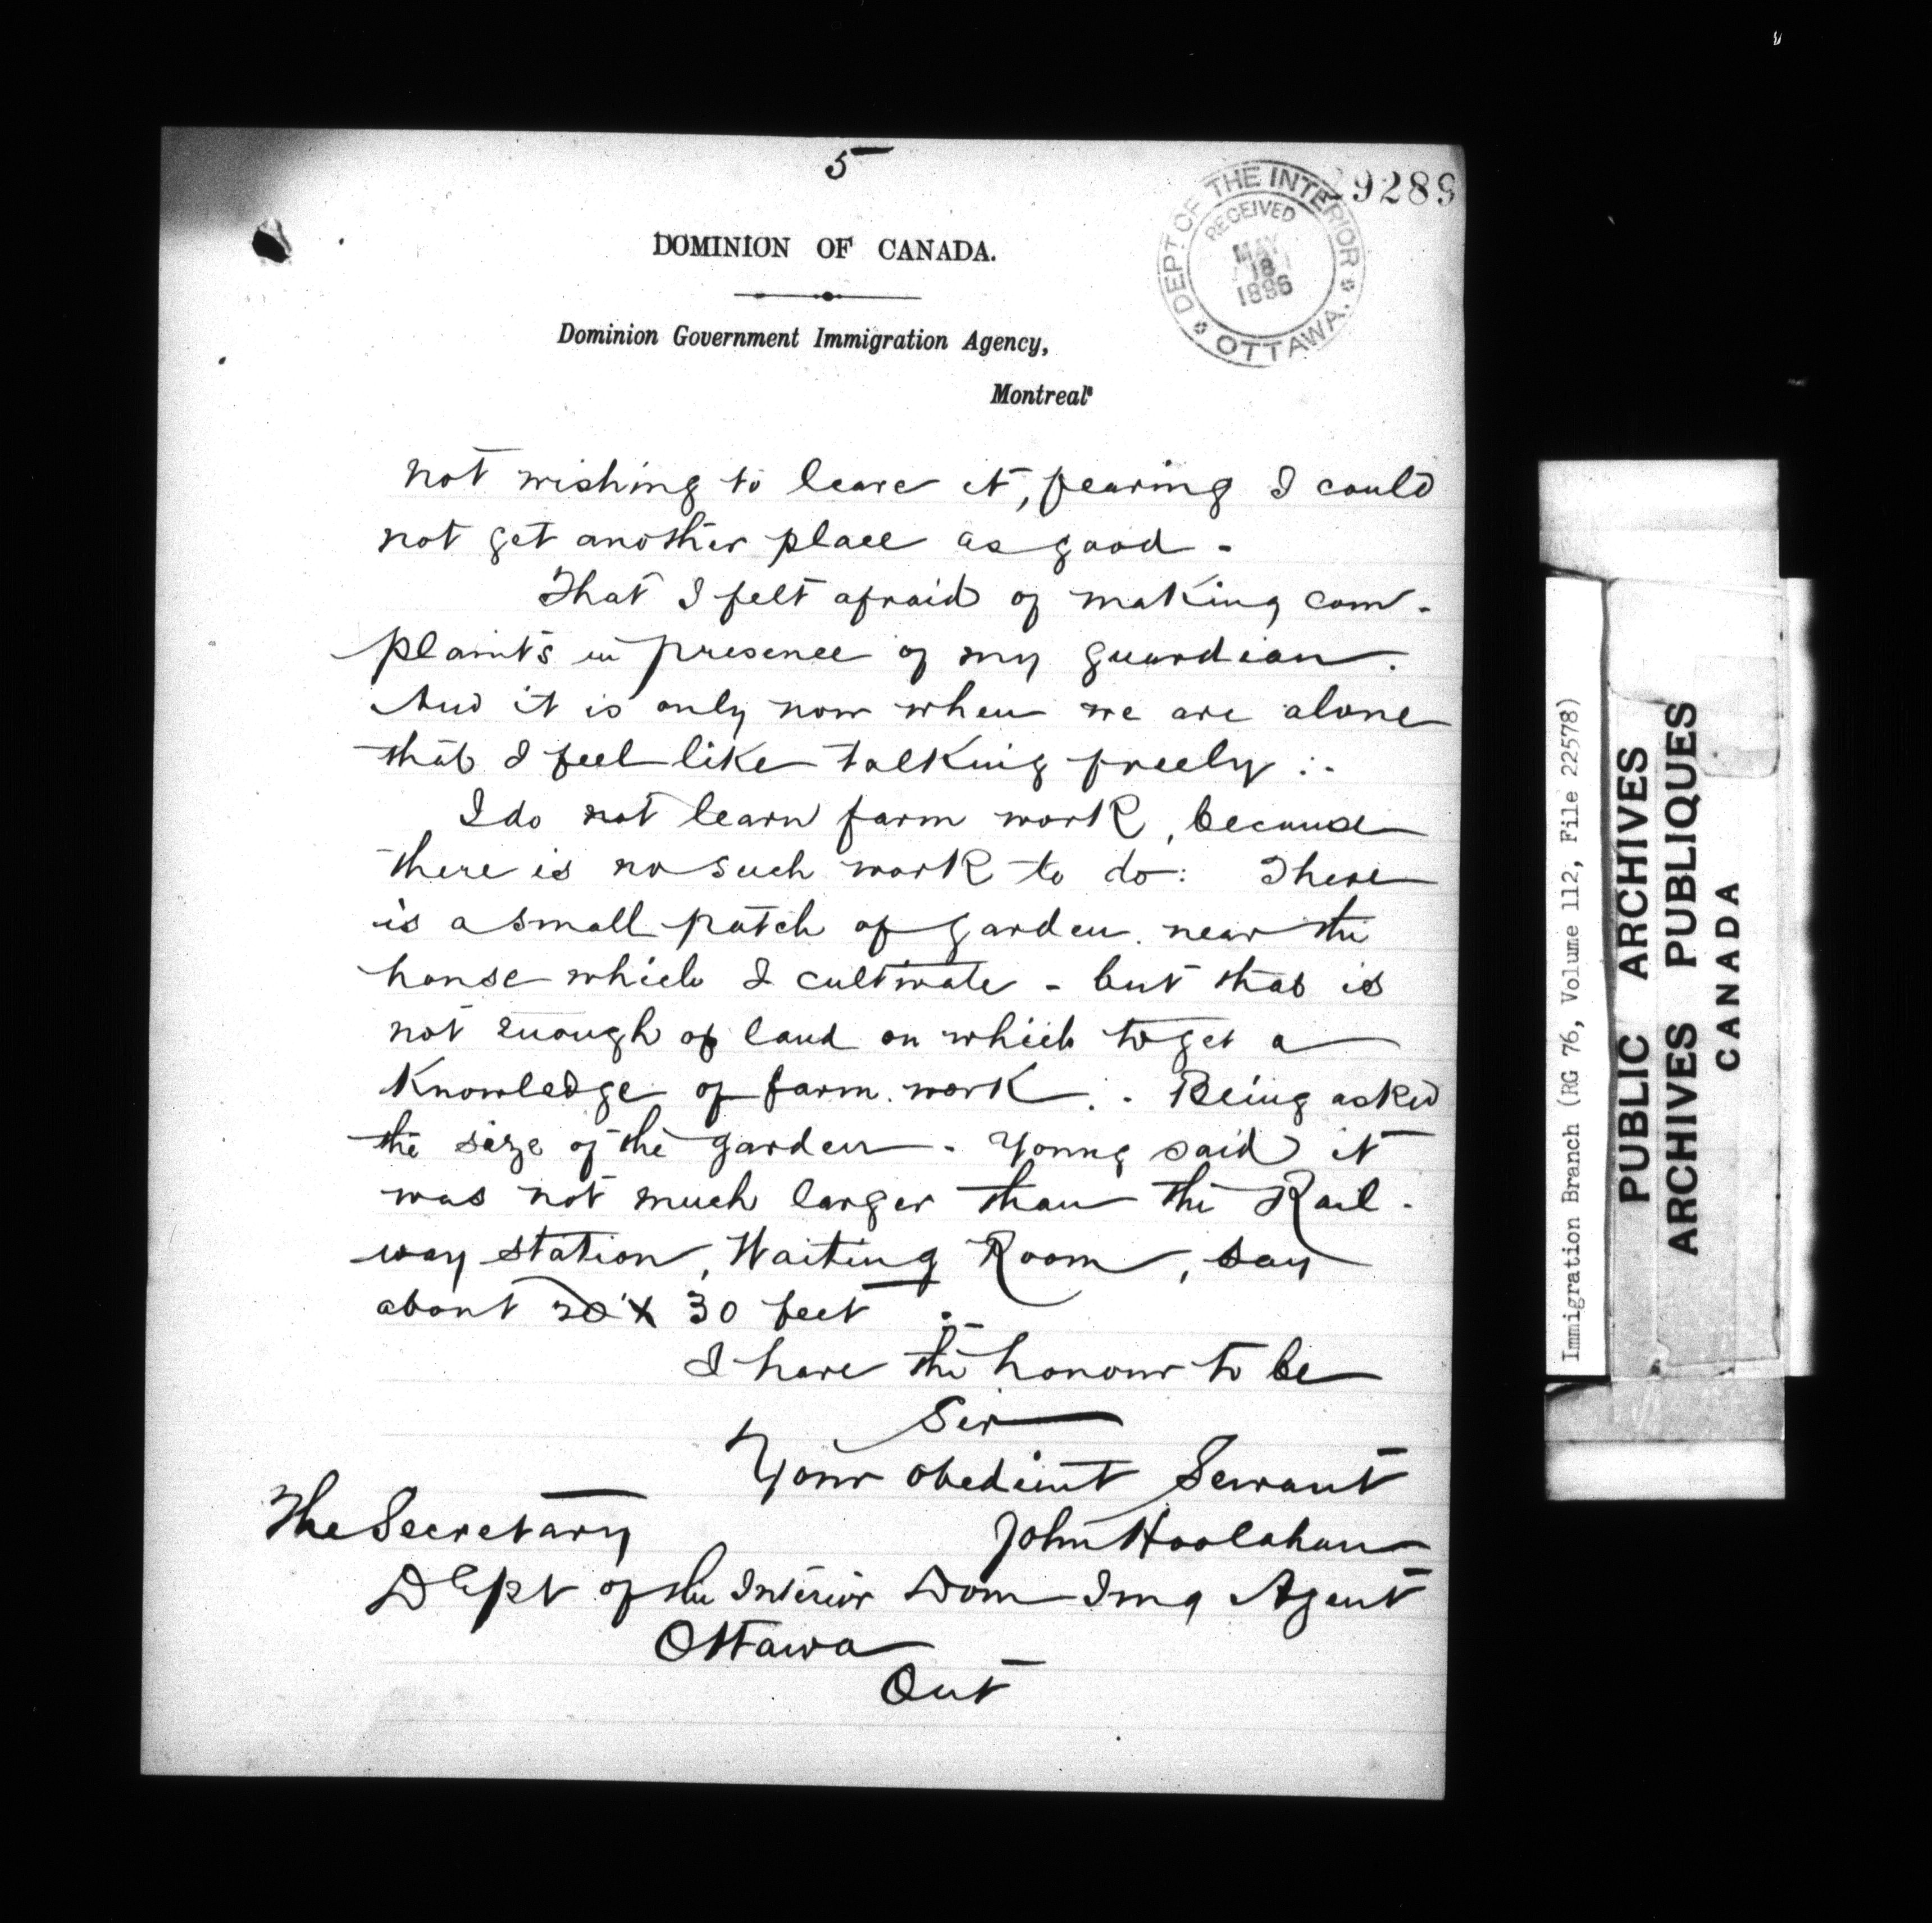 5
29289
DEPT OF THE INTERIOR
RECEIVED
MAY
18
1896
OTTAWA.
DOMINION OF CANADA.
Dominion Government Immigration Agency,
Montreal
not wishing to leave it, fearing I could
not get another place as good -
That I felt afraid of making com-
plaints in presence of my guardian.
And it is only now when we are alone
that I feel like talking freely :-
I do not learn farm work, because
there is no such work to do: There
is a small patch of garden near the
house which I cultivate - but that is
not enough of land on which to get a
Knowledge of farm work :- Being asked
the size of the garden - Young said it
was not much larger than the Rail-
way station, Waiting Room, say
about 20 x 30 feet :-
I have the honour to be
Sir
Your obedient Servant
The Secretary John Hoolahan
Dept of the Interior Dom Img Agent
Ottawa
Ont
Immigration Branch (RG 76, Volume 112, File 22578)
PUBLIC ARCHIVES
ARCHIVES PUBLIQUES
CANADA